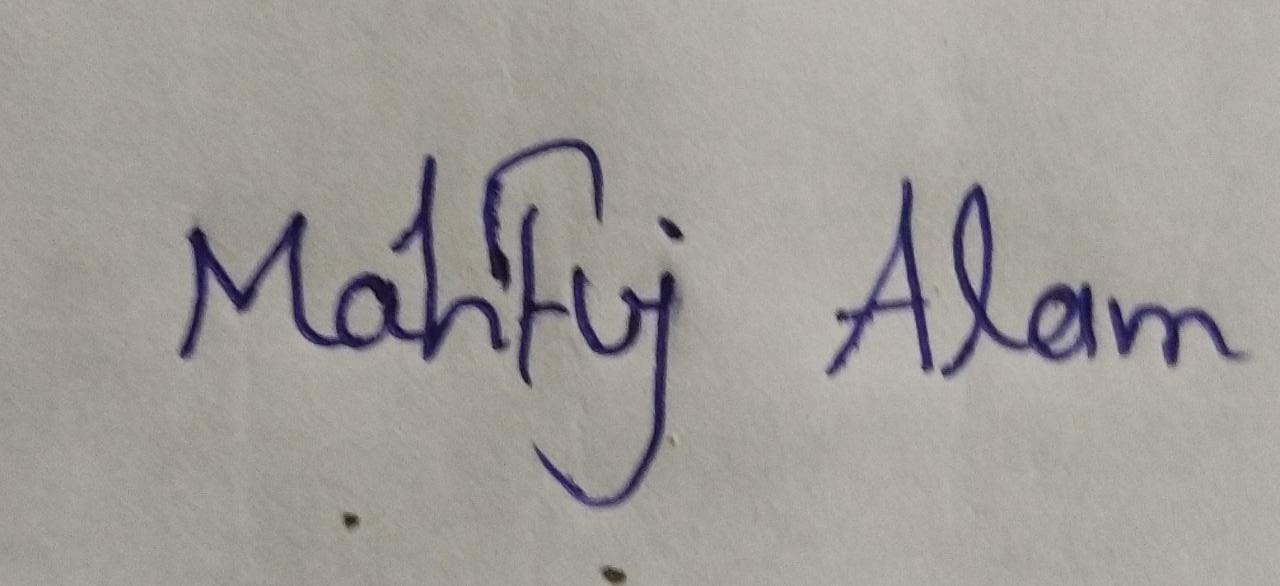 Mahfuj Alam